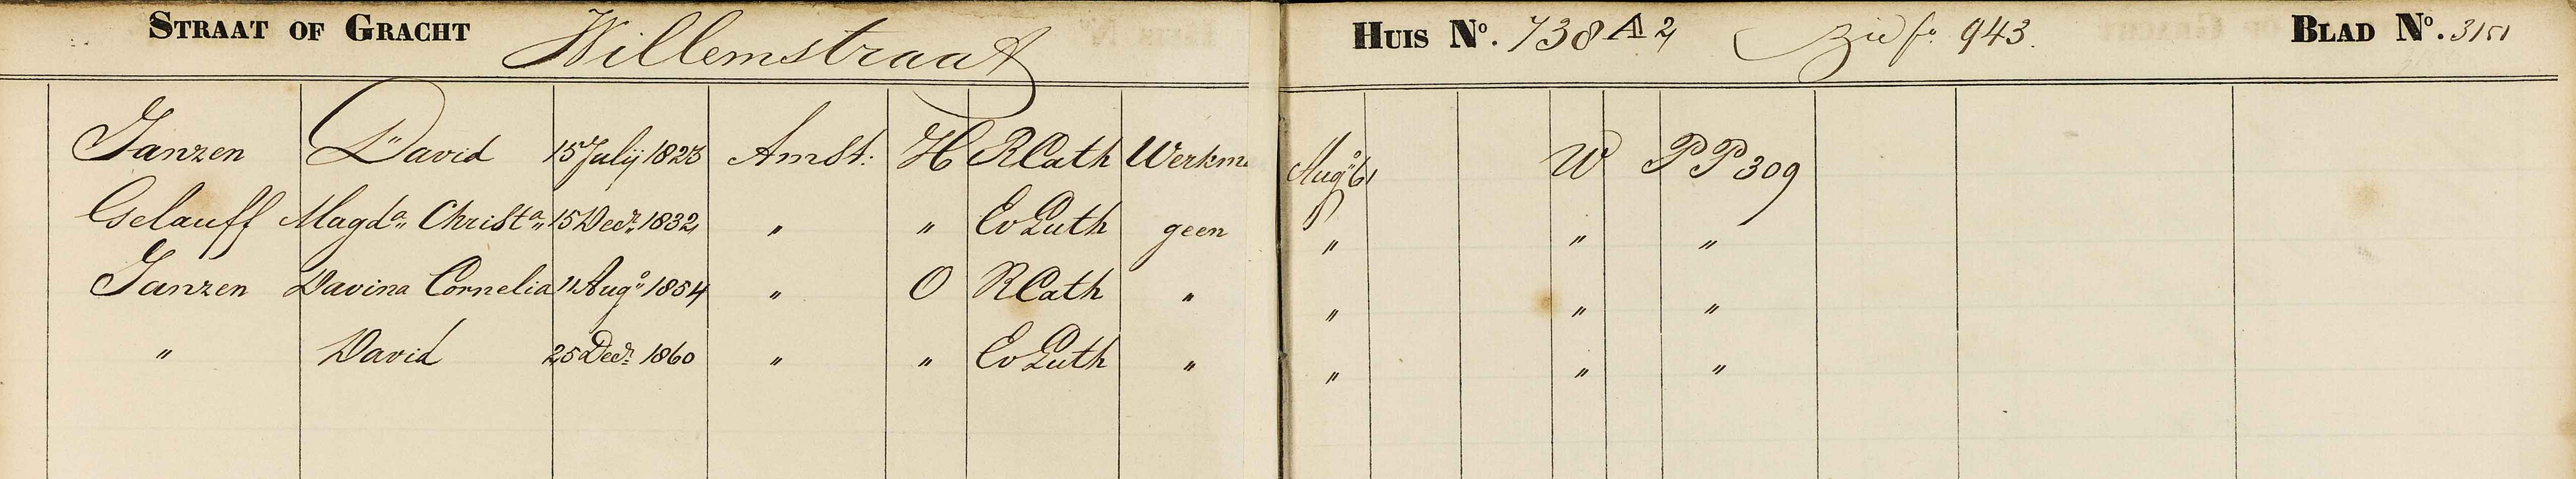 STRAAT OF GRACHT Willemstraat HUIS No. 738 A 2 zie fo. 943. BLAD No. 3151
Janzen David 15 Julij 1823 Amst: H RCath Werkm Augo 61 W PP 309
Gelauff Magda„ Christa„ 15 Decr. 1832 „ „ Ev Luth geen „ „ „
Janzen Davina Cornelia 11 Augo 1854 „ O RCath „ „ „ „
„ David 25 Decr. 1860 „ „ Ev Luth „ „ „ „